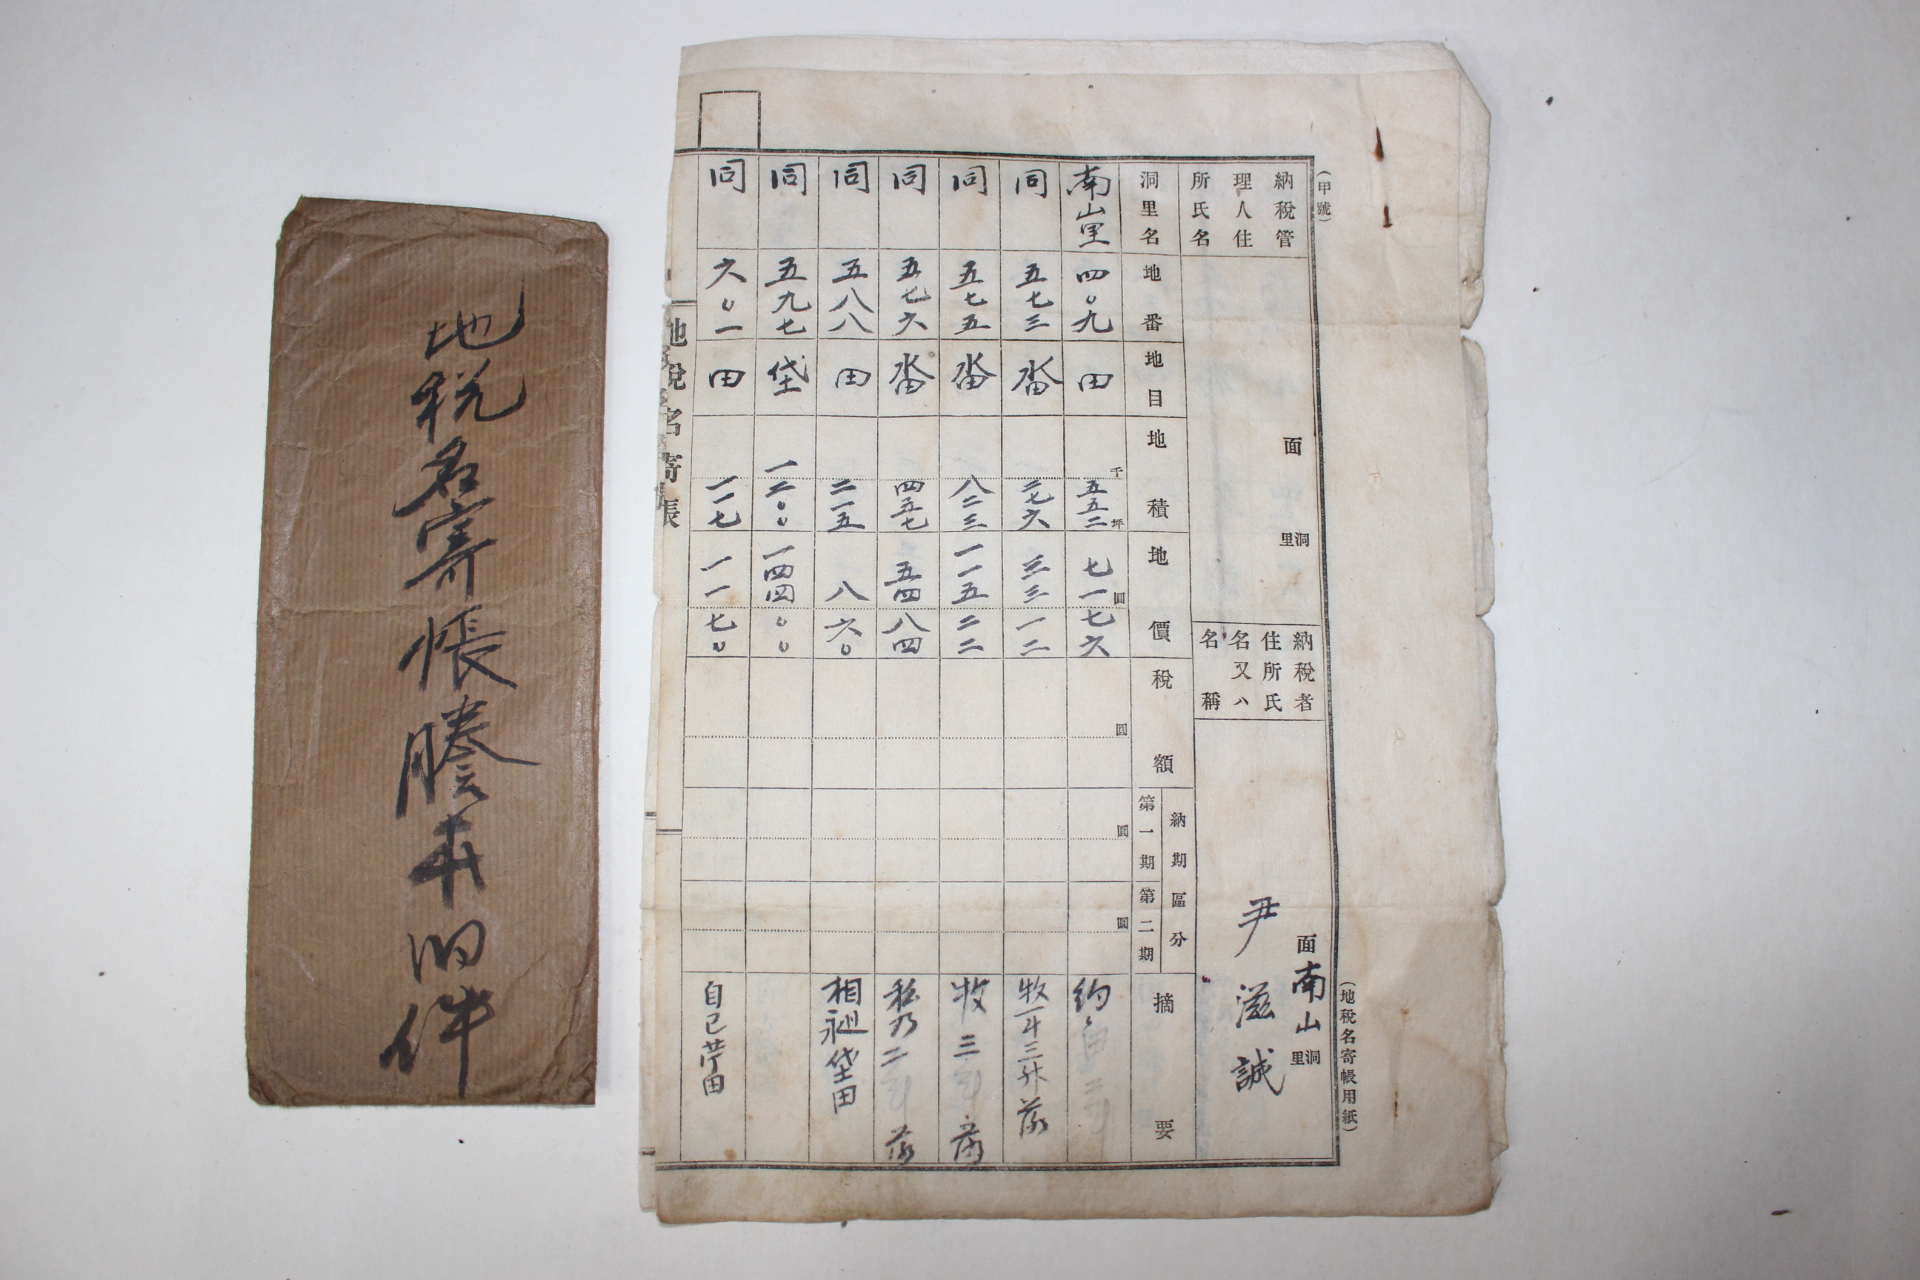 地稅名寄帳謄本四件
(甲號)
(地稅名寄帳用紙)
納稅管
理人住
所氏名
面
洞里
納稅者
住所氏
名又ハ
名稱
面南山洞里
尹滋誠
洞里名
地番
地目
地積
地價
稅額
納期區分
第一期
第二期
摘要
南山里 四〇九 田 千 五五二坪 七一圓七六
同 五七三 畓 二七六 三三一二
同 五七五 畓 八二三 一一五二二
同 五七六 畓 四五七 五四八四
同 五八八 田 二一五 八六〇
同 五九七 垈 一二〇〇 一四四〇〇
同 六〇一 田 一一七 一一七〇
圓
圓
圓
牧一斗三升落
牧三斗落
二斗落
相廵垈田
自己苧田
地稅名寄帳